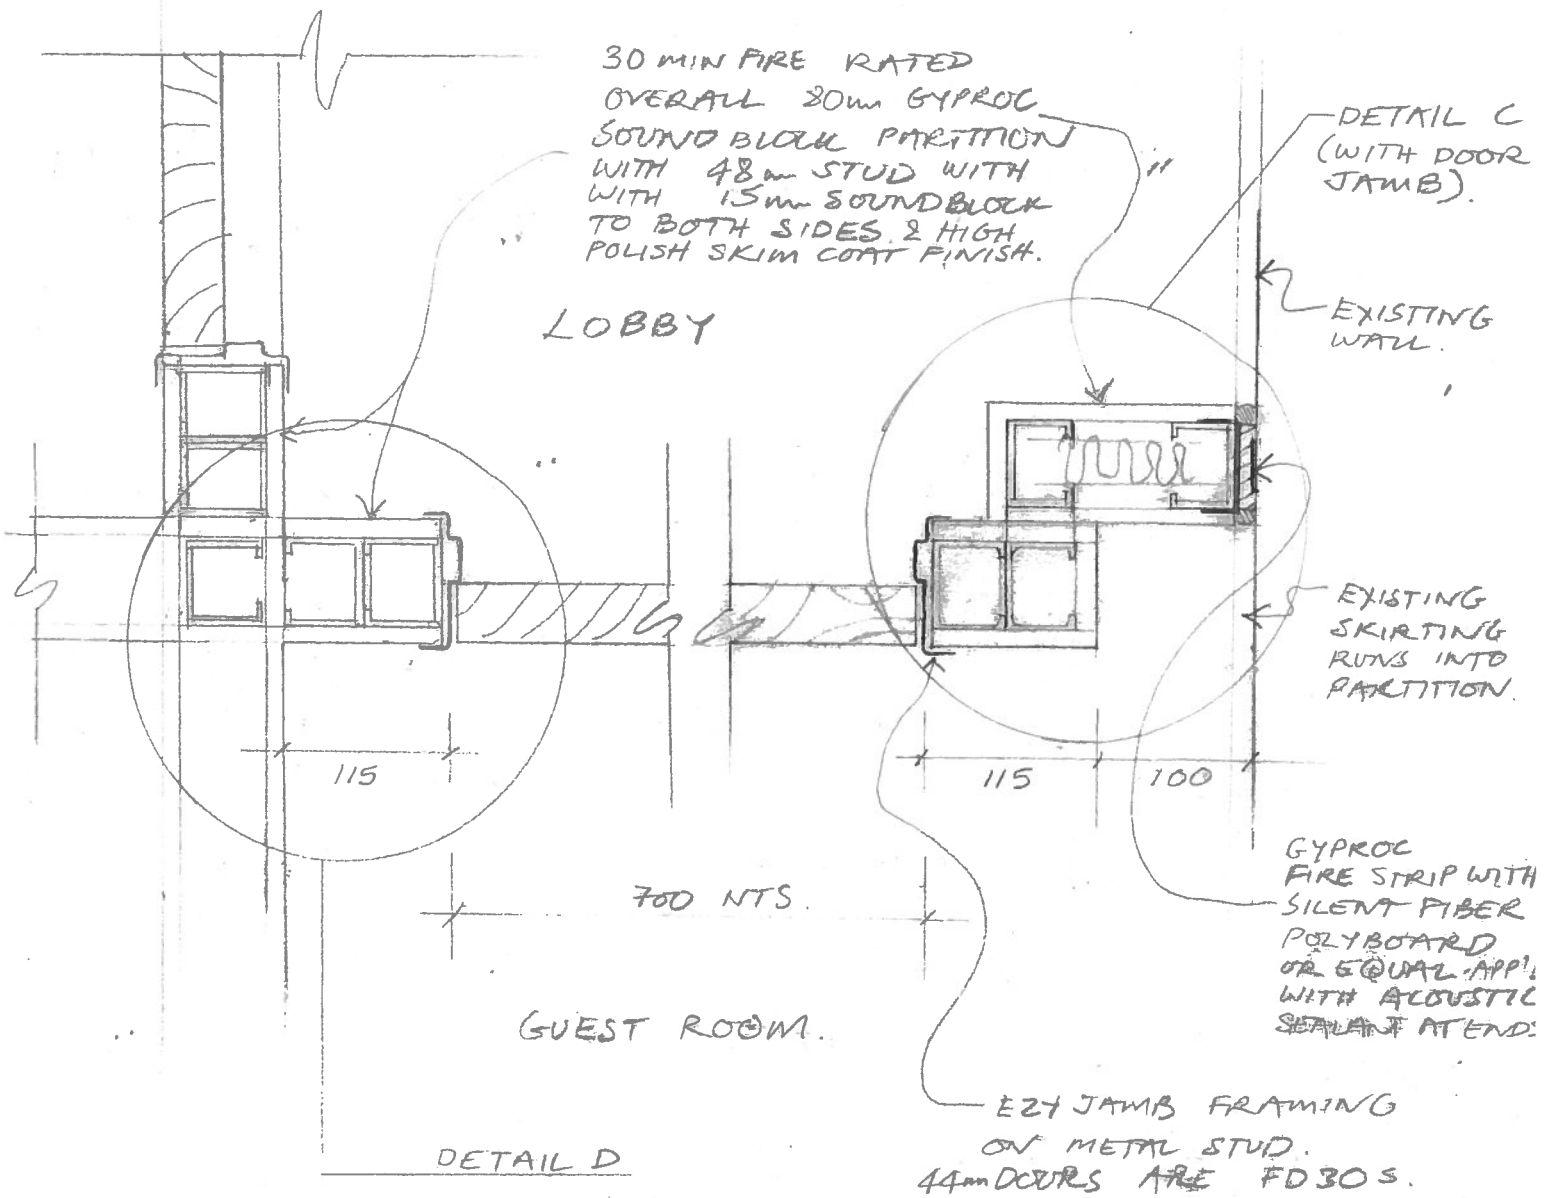 30 MIN FIRE RATED
OVERALL 80mm GYPROC
SOUNDBLOCK PARTITION
WITH 48mm STUD WITH
WITH 15mm SOUNDBLOCK
TO BOTH SIDES & HIGH
POLISH SKIM COAT FINISH.
DETAIL C
(WITH DOOR
JAMB).
LOBBY
EXISTING
WALL.
EXISTING
SKIRTING
RUNS INTO
PARTITION.
115
115
100
700 NTS.
GYPROC
FIRE STRIP WITH
SILENT FIBER
POLYBOARD
OR EQUAL APP'
WITH ACOUSTIC
SEALANT AT ENDS
GUEST ROOM.
EZY JAMB FRAMING
ON METAL STUD.
44mm DOORS ARE FD30S.
DETAIL D